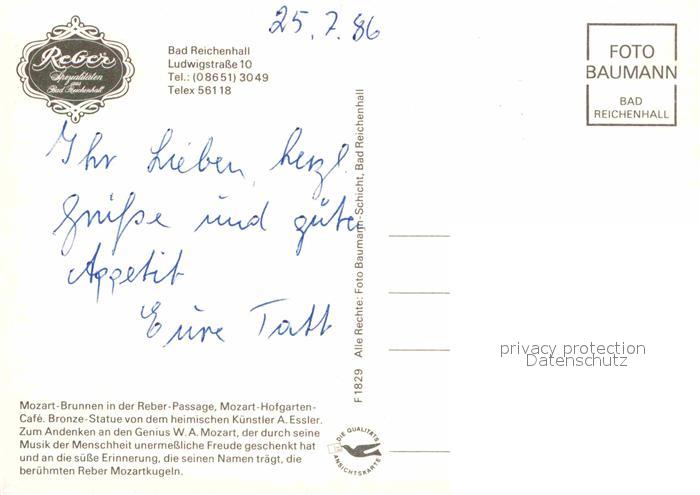 25. 7. 86
Reber
Spezialitäten
aus
Bad Reichenhall
Bad Reichenhall
Ludwigstraße 10
Tel.: (0 86 51) 30 49
Telex 561 18
FOTO
BAUMANN
BAD
REICHENHALL
Ihr Lieben, herzl.
Grüße und gute
Appetit
Eure Tatt
F 1829 Alle Rechte: Foto Baumann-Schicht, Bad Reichenhall
privacy protection
Datenschutz
Mozart-Brunnen in der Reber-Passage, Mozart-Hofgarten-
Café. Bronze-Statue von dem heimischen Künstler A. Essler.
Zum Andenken an den Genius W. A. Mozart, der durch seine
Musik der Menschheit unermeßliche Freude geschenkt hat
und an die süße Erinnerung, die seinen Namen trägt, die
berühmten Reber Mozartkugeln.
DIE QUALITÄTS
ANSICHTSKARTE